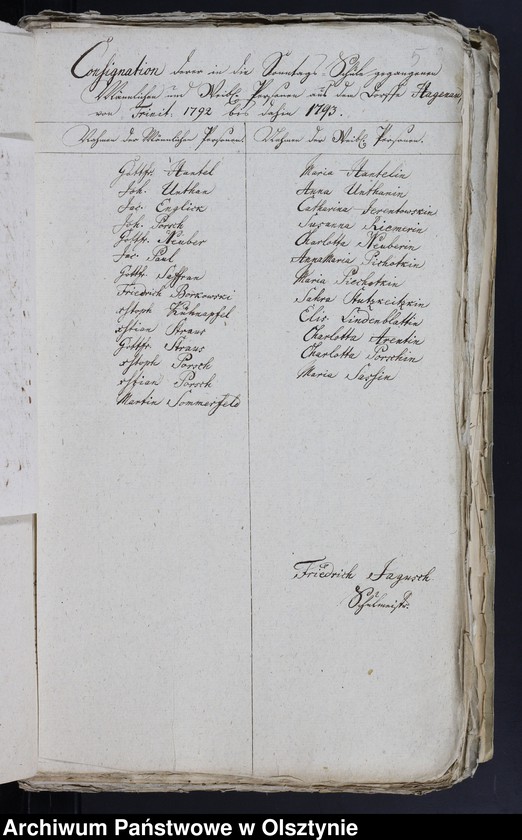 5
Consignation derer in die Sonntags-Schule gegangenen
Männlichen und Weibl Personen aus dem Dorffe Hagenau,
von Trinit. 1792 bis dahin 1793.
Nahmen der Männlichen Personen.
Nahmen der Weibl. Personen.
Gottfr. Hantel
Joh. Unthan
Jac. Englick
Joh. Porsch
Gottfr. Neuber
Jac. Paul
Gottfr. Saffran
Friedrich Borkowski
xstoph Kühnapfel
xstian Straus
Gottfr. Straus
xstoph Porsch
xstian Porsch
Martin Sommerfeld
Maria Hantelin
Anna Unthanin
Catharina
Susanna Riemerin
Charlotta Neuberin
AnnaMaria Pichotkin
Maria Pichotkin
Elis. Lindenblattin
Charlotta Arentin
Charlotta Porschin
Maria Sassin
Friedrich Jagusch
Schulmeistr.
Archiwum Państwowe w Olsztynie